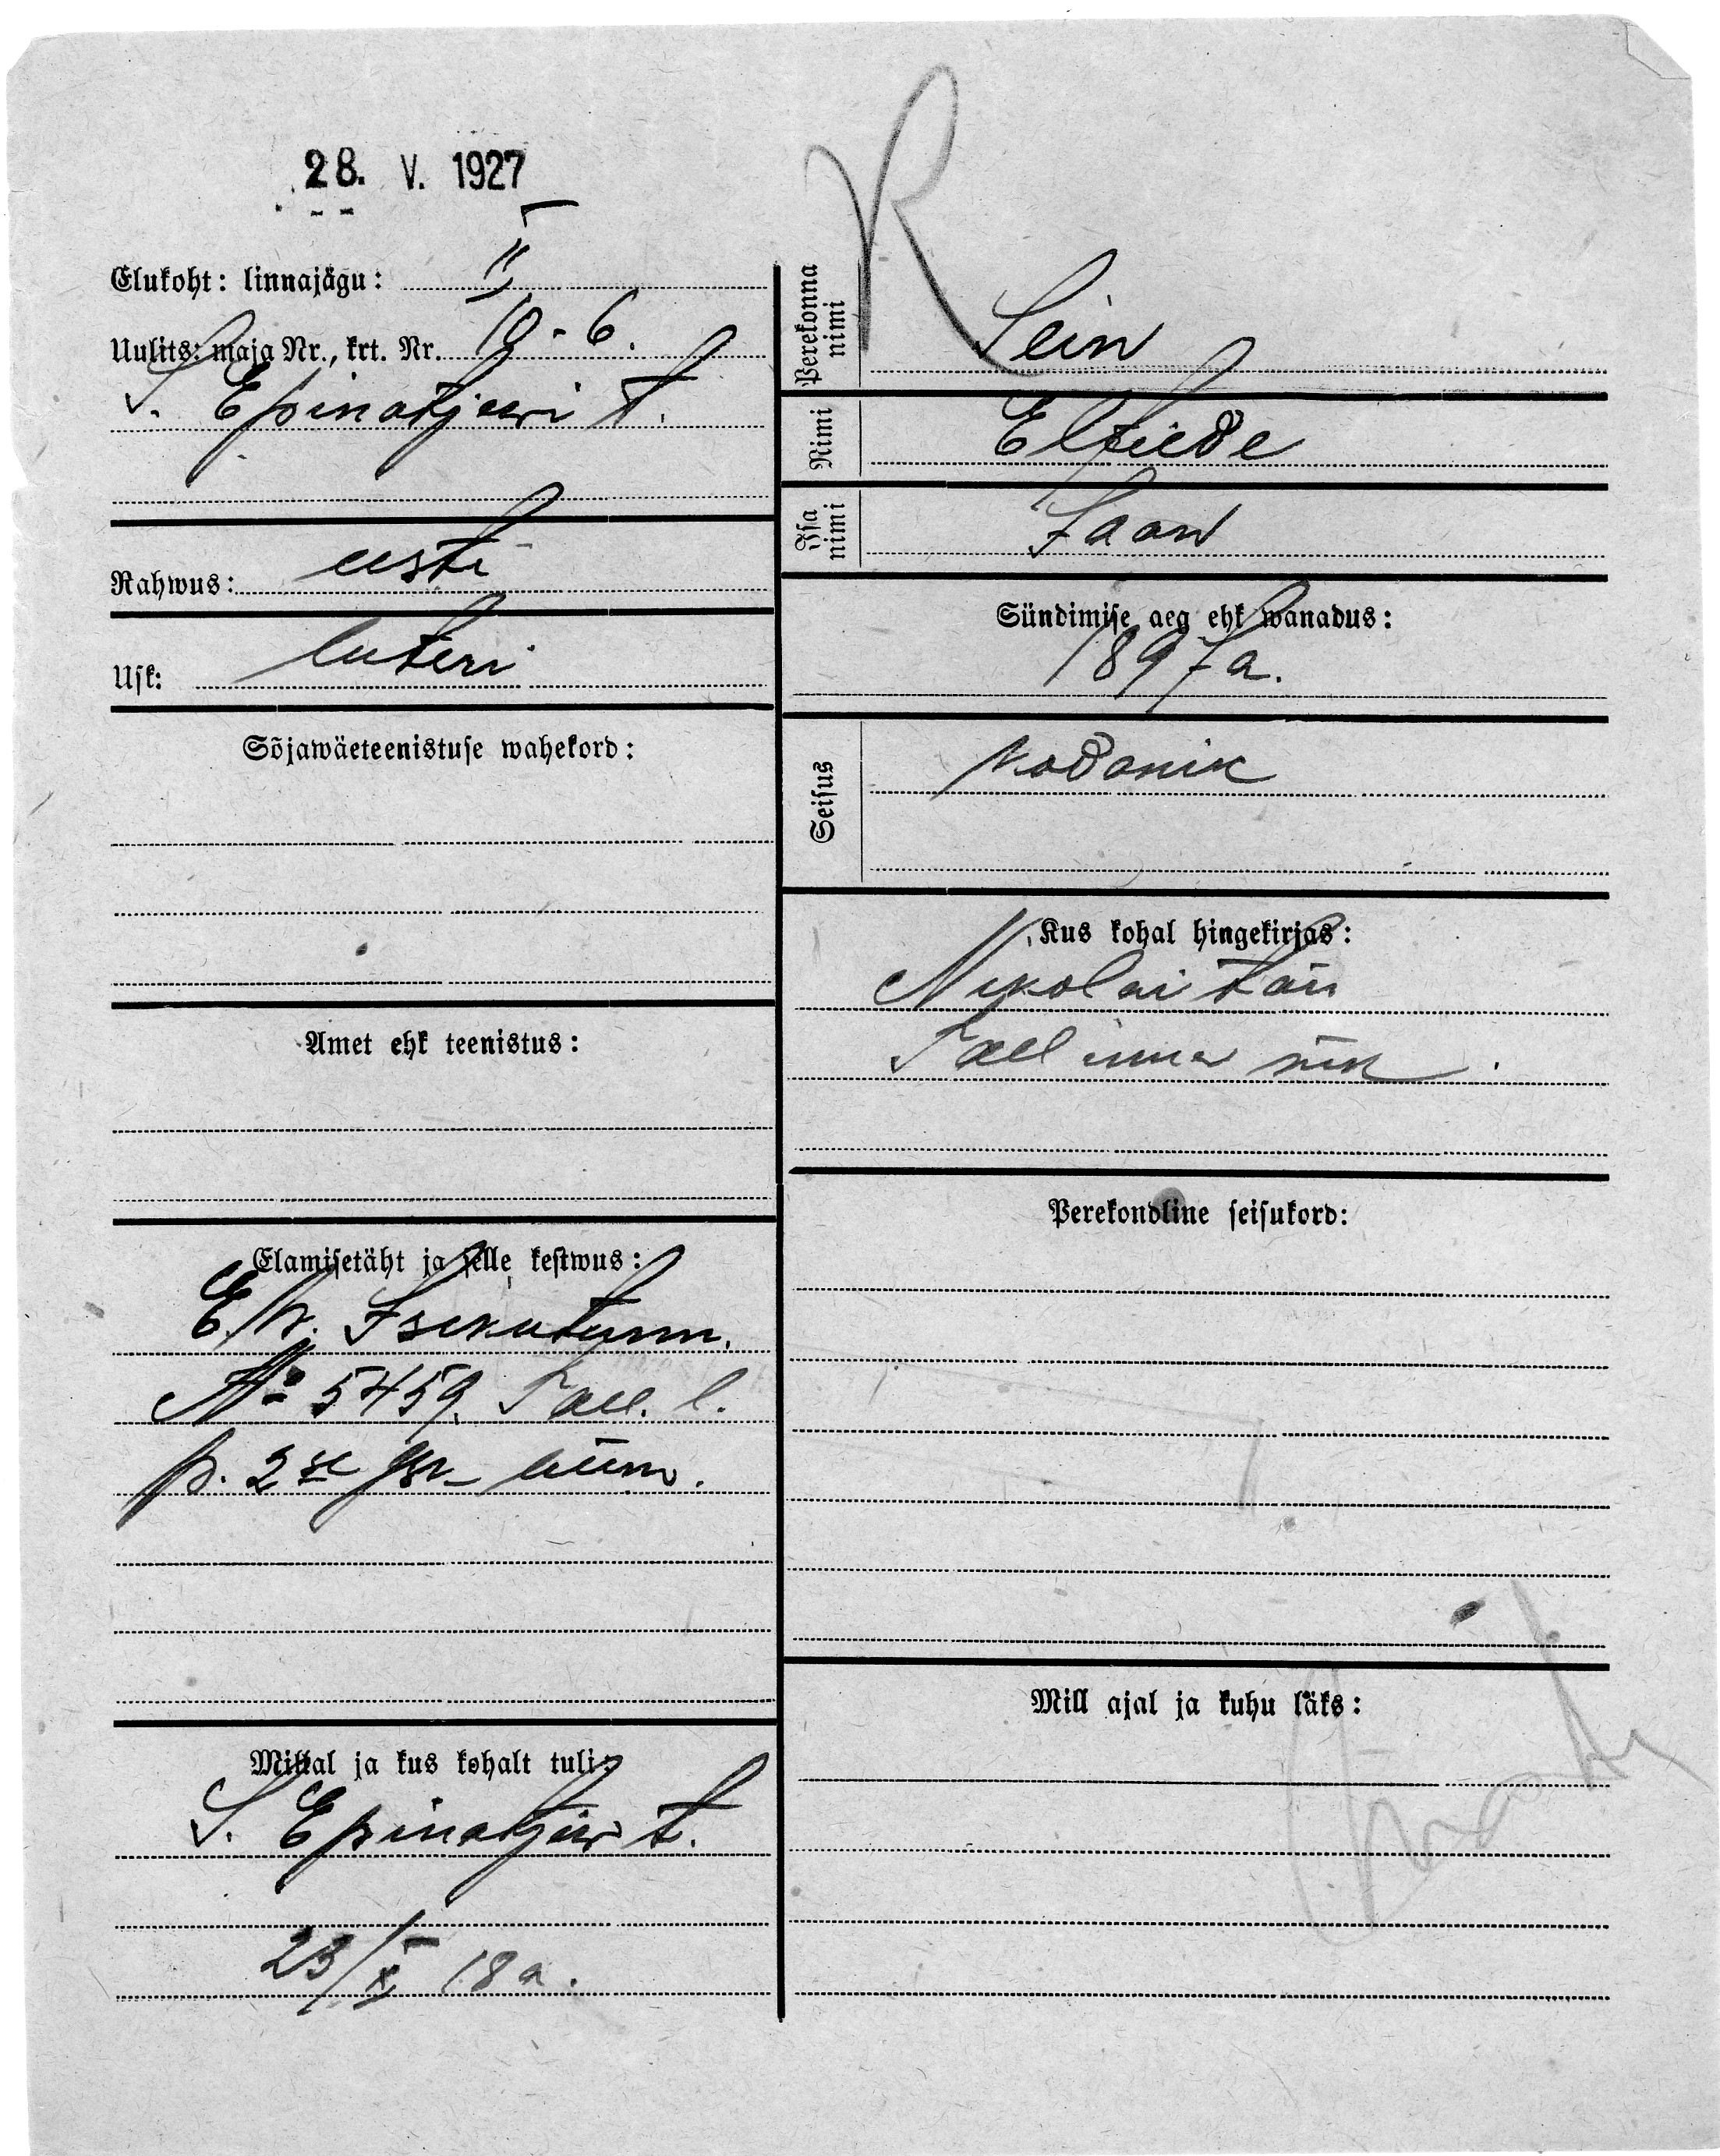 28. V. 1927
R
Elukoht: linnajägu: II
Uulits: maja Nr., krt. Nr. 10-6.
S. Epinatjewi t.
Rahwus: eesti
Usk: luteri
Sõjawäeteenistuse wahekord:
Amet ehk teenistus:
Elamisetäht ja selle kestwus:
E. W. Isikutunn.
№ 5459. Tall. l.
p. 2se jsk.
Millal ja kus kohalt tuli:
S. Epinatjew t.
23/X 18 a.
Perekonna nimi Sein
Nimi Elfriede
Isa nimi Jaan
Sündimise aeg ehk wanadus:
1897 a.
Seisus kodanik
Kus kohal hingekirjas:
Nikolai
Tallinna
Perekondline seisukord:
Mill ajal ja kuhu läks: